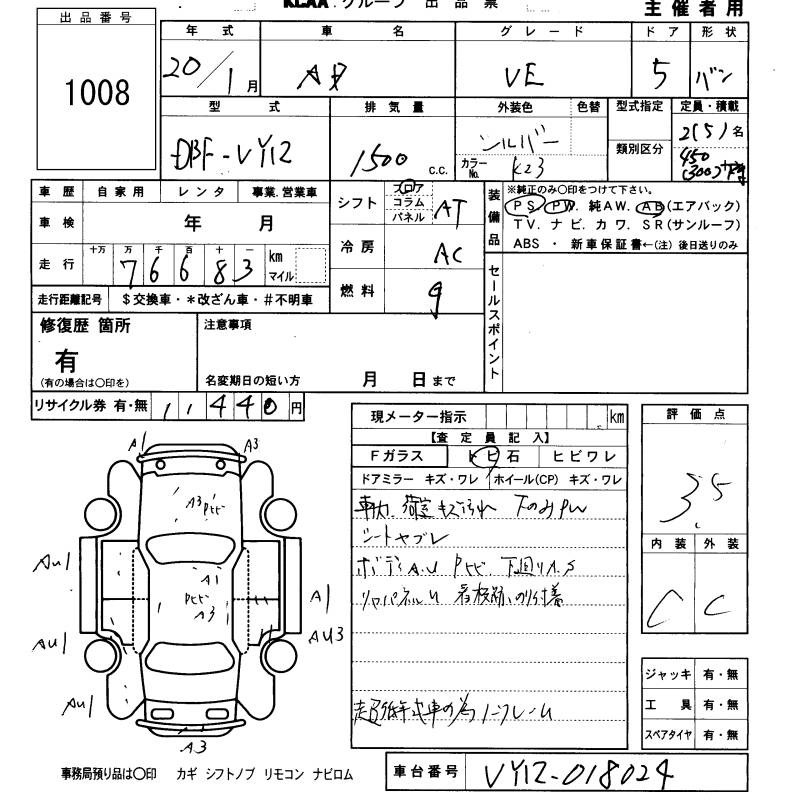 KCAA.グループ 出品票
主催者用
出品番号
1008
年式 車名 グレード ドア 形状
20/1月 AD VE 5 バン
型式 排気量 外装色 色替 型式指定 定員・積載
DBF-VY12 1500 c.c. シルバー カラーNo. K23 類別区分 2(5)名
450
(300)
車歴 自家用 レンタ 事業.営業車
車検 年 月
走行 十万 万 千 百 十 一 km マイル
76683
走行距離記号 $交換車・*改ざん車・#不明車
シフト フロア コラム パネル AT
冷房 AC
燃料 g
装備品
※純正のみ〇印をつけて下さい。
PS PW. 純AW. AB(エアバック)
TV. ナビ. カワ. SR(サンルーフ)
ABS ・ 新車保証書←(注)後日送りのみ
セールスポイント
修復歴 箇所
有
(有の場合は〇印を)
注意事項
名変期日の短い方 月 日まで
リサイクル券 有・無 11440円
現メーター指示 km
【査定員記入】
Fガラス トビ石 ヒビワレ
ドアミラー キズ・ワレ ホイール(CP) キズ・ワレ
内装 荷室キズ汚れ 下のみPW
シートヤブレ
ボディA.U Pヒビ 下回りA.S
リヤパネルU 看板跡.のり付着
超低年式車の為ノークレーム
評価点
3.5
内装 外装
C C
ジャッキ 有・無
工具 有・無
スペアタイヤ 有・無
A1 A3
A3 Pヒビ
AU1
A1
Pヒビ
A3
A1
AU1 AU3
AU1
A3
事務局預り品は〇印 カギ シフトノブ リモコン ナビロム
車台番号 VY12-018024